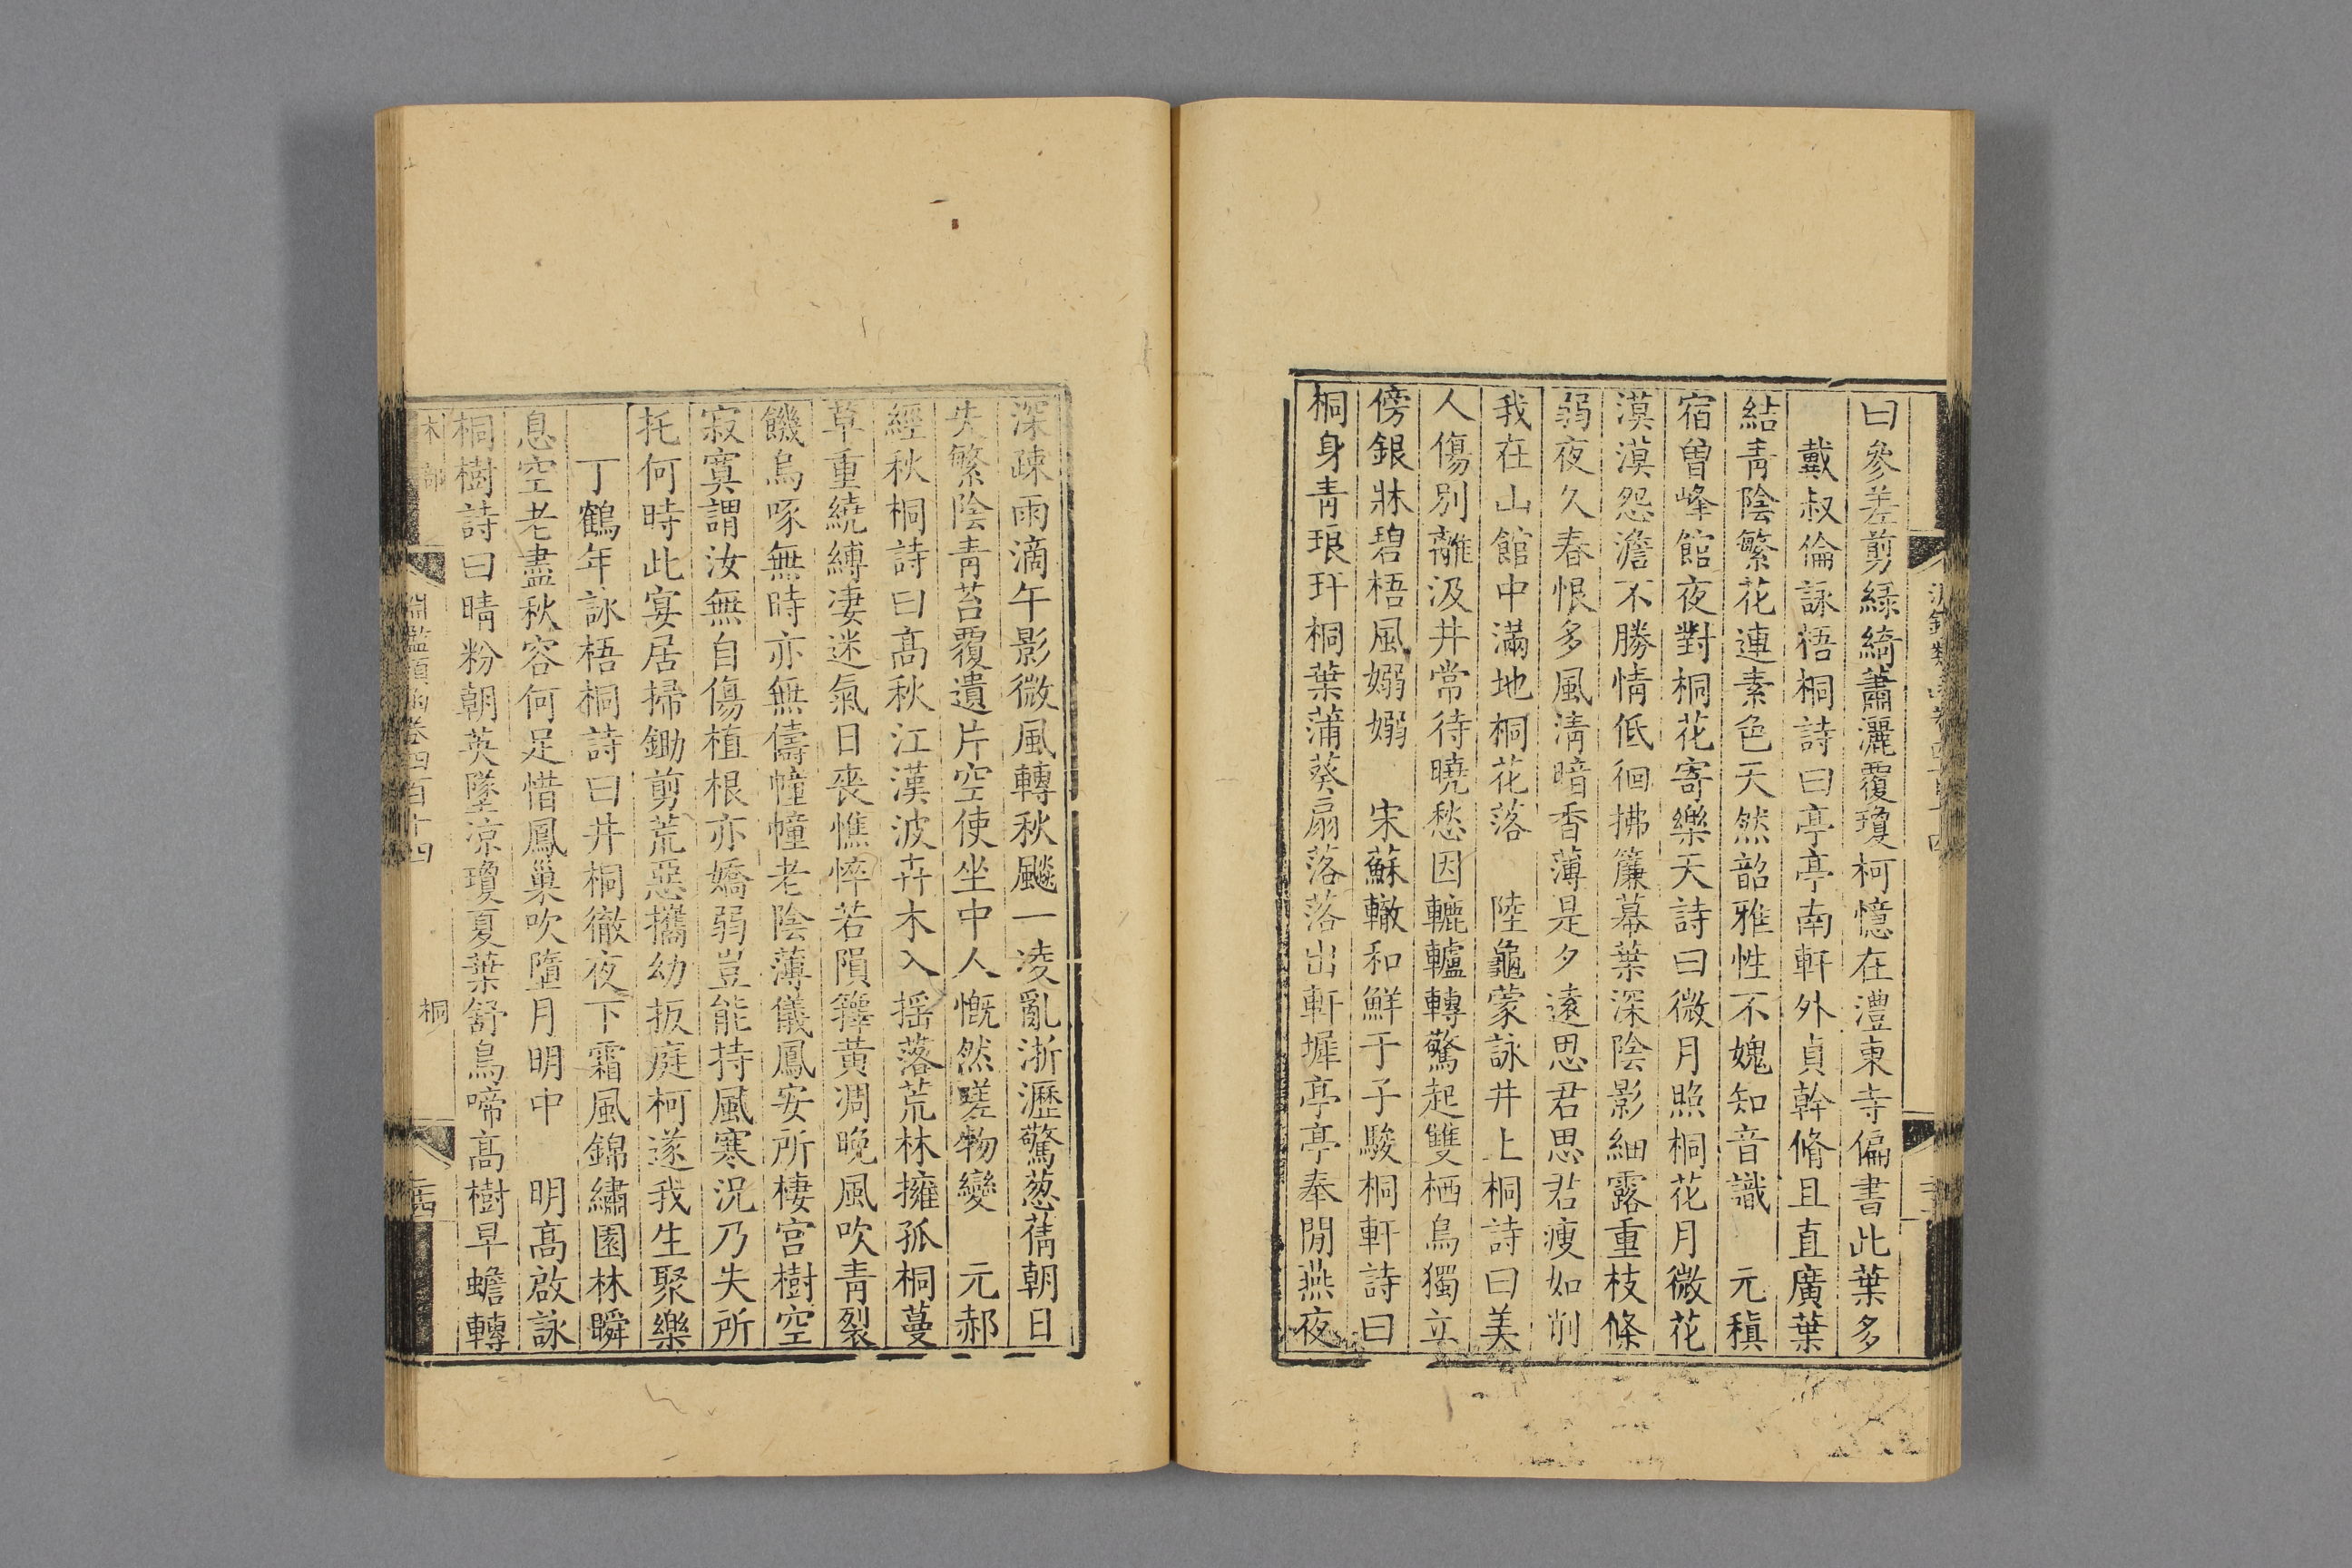 曰參差剪綠綺蕭灑覆瓊柯憶在澧東寺偏書此葉多
戴叔倫詠梧桐詩曰亭亭南軒外貞幹脩且直廣葉
結青陰繁花連素色天然韶雅性不媿知音識　元稹
宿曾峰館夜對桐花寄樂天詩曰微月照桐花月微花
漠漠怨澹不勝情低徊拂簾幕葉深陰影細露重枝條
弱夜久春恨多風淸暗香薄是夕遠思君思君瘦如削
我在山館中滿地桐花落　陸龜蒙詠井上桐詩曰美
人傷別離汲井常待曉愁因轆轤轉驚起雙栖鳥獨立
傍銀牀碧梧風嫋嫋　宋蘇轍和鮮于子駿桐軒詩曰
桐身青琅玕桐葉蒲葵扇落落出軒墀亭亭奉閒燕夜
深疎雨滴午影微風轉秋飈一凌亂淅瀝驚葱蒨朝日
失繁陰青苔覆遺片空使坐中人慨然嗟物變　元郝
經秋桐詩曰高秋江漢波卉木入揺落荒林擁孤桐蔓
草重繞縛凄迷氣日喪憔悴若隕籜黄凋晚風吹青裂
饑烏啄無時亦無儔幢幢老陰薄儀鳳安所棲宫樹空
寂寞謂汝無自傷植根亦嬌弱豈能持風寒况乃失所
托何時此宴居掃鋤剪荒惡攜幼扳庭柯遂我生聚樂
丁鶴年詠梧桐詩曰井桐徹夜下霜風錦繡園林瞬
息空老盡秋容何足惜鳳巢吹墮月明中　明高啟詠
桐樹詩曰晴粉朝英墜凉瓊夏葉舒鳥啼高樹早蟾轉
木部　淵鑑類函卷四百十四　桐　二四